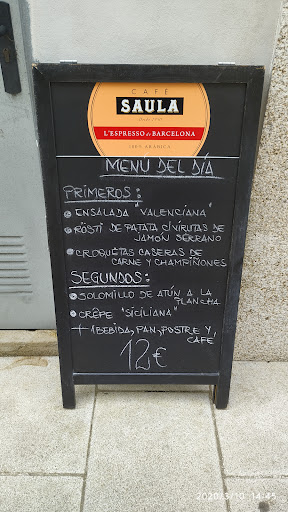 CAFÉ
SAULA
desde 1950
L'ESPRESSO de BARCELONA
100% ARABICA
MENU DEL DÍA
PRIMEROS:
• ENSALADA "VALENCIANA"
• RÖSTI DE PATATA C/VIRUTAS DE
JAMÓN SERRANO
• CROQUETAS CASERAS DE
CARNE Y CHAMPIÑONES
SEGUNDOS:
• SOLOMILLO DE ATÚN A LA
PLANCHA
• CRÊPE "SICILIANA"
+ 1 BEBIDA, PAN, POSTRE Y
CAFÉ
12€
2020/3/10 14:45